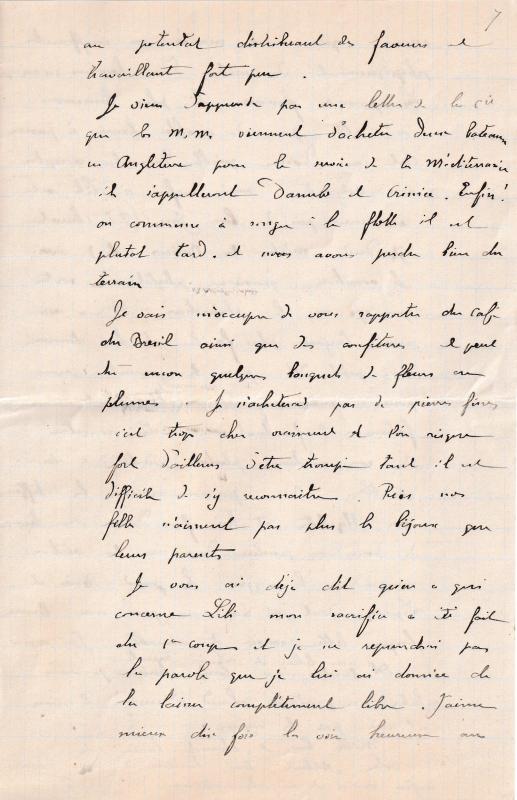 7
au potentat distribuant des faveurs et
travaillant fort peu.
Je viens d'apprendre par une lettre de la Cie
que les M.M. viennent d'acheter deux bateaux
en Angleterre pour le service de la Méditerranée
ils s'appelleront Danube et Crimée. Enfin!
on commence à songer à la flotte il est
plutot tard. et nous avons perdu bien du
terrain
Je vais m'occuper de vous rapporter du café
du Bresil ainsi que des confitures et peut
être encore quelques bouquets de fleurs en
plumes. Je n'achèterai pas de pierres fines
c'est trop cher vraiment et l'on risque
fort d'ailleurs d'être trompé tant il est
difficile de s'y reconnaitre. nos
filles n'aiment pas plus les bijoux que
leurs parents
Je vous ai déjà dit qu'en ce qui
concerne Lili mon sacrifice a été fait
du 1er coup et je ne reprendrai pas
la parole que je lui ai donnée de
la laisser complètement libre. J'aime
mieux dix fois la voir heureuse au